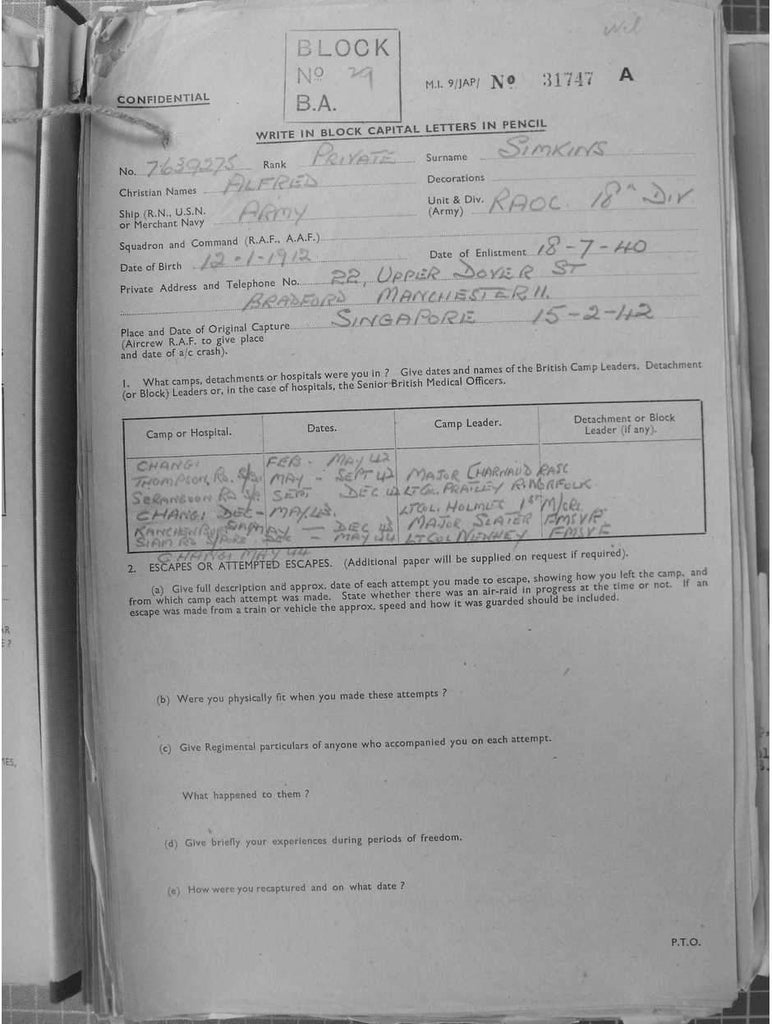 BLOCK
No 29
B.A.
Nil
M.I. 9/JAP/ No 31747 A
CONFIDENTIAL
WRITE IN BLOCK CAPITAL LETTERS IN PENCIL
No. 7639275 Rank PRIVATE Surname SIMKINS
Christian Names ALFRED Decorations
Ship (R.N., U.S.N. or Merchant Navy ARMY Unit & Div. (Army) RAOC. 18th DIV
Squadron and Command (R.A.F., A.A.F.)
Date of Birth 12-1-1912 Date of Enlistment 18-7-40
Private Address and Telephone No. 22, UPPER DOVER ST
BRADFORD MANCHESTER 11.
Place and Date of Original Capture SINGAPORE 15-2-42
(Aircrew R.A.F. to give place
and date of a/c crash).
1. What camps, detachments or hospitals were you in ? Give dates and names of the British Camp Leaders, Detachment
(or Block) Leaders or, in the case of hospitals, the Senior British Medical Officers.
Camp or Hospital. Dates. Camp Leader. Detachment or Block Leader (if any).
CHANGI FEB - MAY 42
THOMPSON RD. MAY - SEPT 42 MAJOR CHARNAUD RASC
SERANGOON RD SEPT DEC 42 LT COL.
CHANGI DEC - MAY 43. LT COL. HOLMES 1st M/CR.
MAY - DEC 43 MAJOR SLATER FMSVR
SIAM RD DEC - MAY 44 LT COL
CHANGI MAY 44
2. ESCAPES OR ATTEMPTED ESCAPES. (Additional paper will be supplied on request if required).
(a) Give full description and approx. date of each attempt you made to escape, showing how you left the camp, and
from which camp each attempt was made. State whether there was an air-raid in progress at the time or not. If an
escape was made from a train or vehicle the approx. speed and how it was guarded should be included.
(b) Were you physically fit when you made these attempts ?
(c) Give Regimental particulars of anyone who accompanied you on each attempt.
What happened to them ?
(d) Give briefly your experiences during periods of freedom.
(e) How were you recaptured and on what date ?
P.T.O.